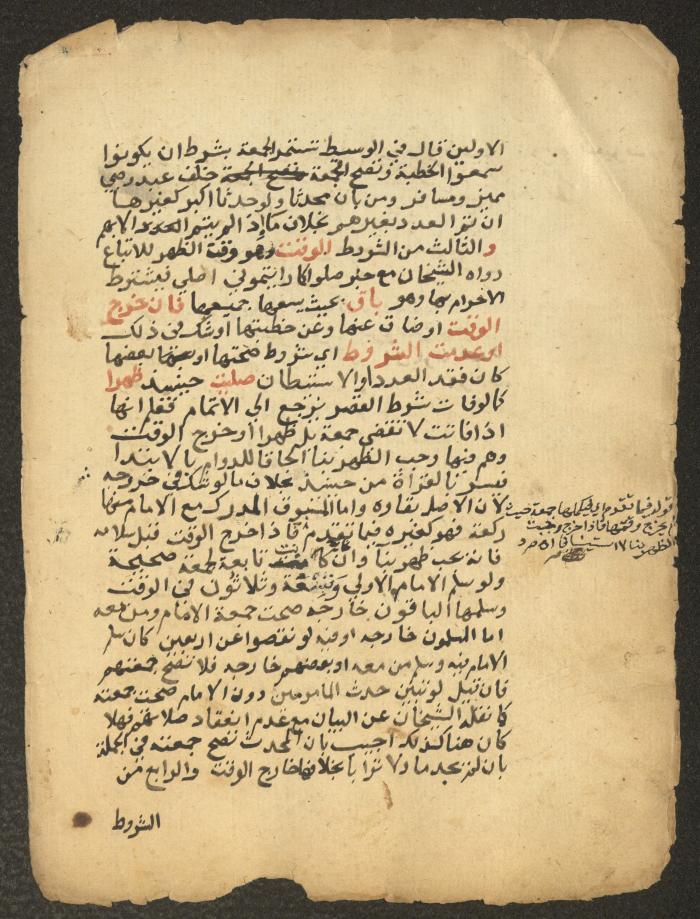 الاولين قال في الوسيط تستمر الجمعة بشرط ان يكونوا
سمعوا الخطبة وتصح الجمعة خلف عبد وصبي
مميز ومسافر ومن بان محدثا ولو حدثا اكبر كغيرها
ان تم العدد بغيرهم بخلاف ما اذا لم يتم الا بهم
والثالث من الشروط الوقت وهو وقت الظهر للاتباع
رواه الشيخان مع خبر صلوا كما رايتموني اصلي فيشترط
الاحرام بها وهو باق بحيث يسعها جميعها فان خرج
الوقت او ضاق عنها وعن خطبتها او شك في ذلك
او عدمت الشروط اي شروط صحتها او بعضها
كان فقد العدد او الاستيطان صليت حينئذ ظهرا
كما لو فات شرط القصر يرجع الي الاتمام فعلم انها
اذا فاتت لا تقضي جمعة بل ظهرا او خرج الوقت
وهم فيها وجب الظهر بنا الحاقا للدوام بالابتدا
فيسر بالقراة من حينئذ بخلاف ما لو شك في خروجه
لان الاصل بقاوه واما المسبوق المدرك مع الامام منها
ركعة فهو كغيره فيما تقدم فاذا خرج الوقت قبل سلامه
فانه يجب ظهر بنا وان كانت تابعة لجمعة صحيحة
ولو سلم الامام الاولي وتسعة وثلاثون في الوقت
وسلمها الباقون خارجه صحت جمعة الامام ومن معه
اما المسلمون خارجه او فيه لو نقصوا عن اربعين كان سلم
الامام فيه وسلم من معه او بعضهم خارجه فلا تصح جمعتهم
فان قيل لو تبين حدث المامومين دون الامام صحت جمعته
كما نقله الشيخان عن البيان مع عدم انعقاد صلاتهم فهلا
كان هنا كذلك اجيب بان المحدث تصح جمعته في الجملة
بان لم يجد ماء ولا ترابا بخلافها خارج الوقت والرابع من
الشروط
قوله فيما تقدم اي فيكملها جمعة حيث
لم يخرج وقتها فاذا خرج وجبت
الظهر بنا لا استئنافا اه